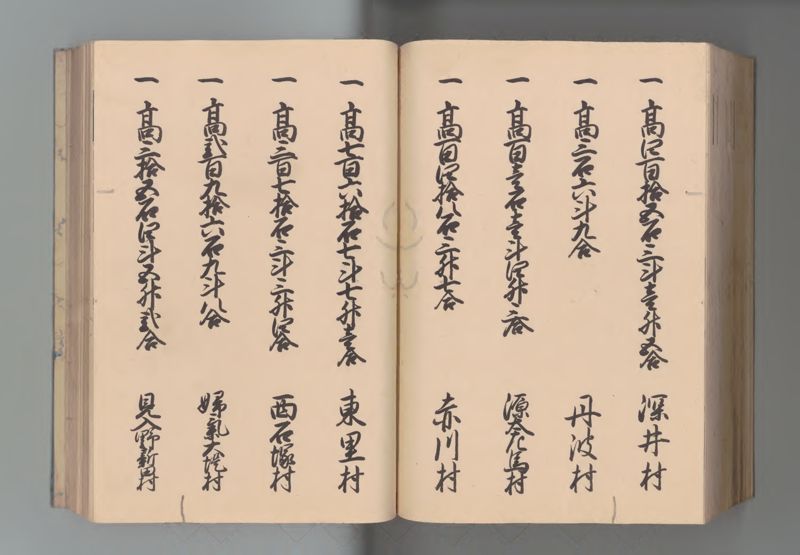 一 高四百拾五石三斗壱升五合 深井村
一 高三石六斗九合 丹波村
一 高百壱石壱斗四升二合 源太左馬村
一 高百四拾八石二升七合 赤川村
一 高七百六拾石七斗七升壱合 東里村
一 高三百七拾石二斗二升四合 西石塚村
一 高弐百九拾六石九斗八合 婦氣大堤村
一 高三拾五石四斗五升弐合 見入野新田村